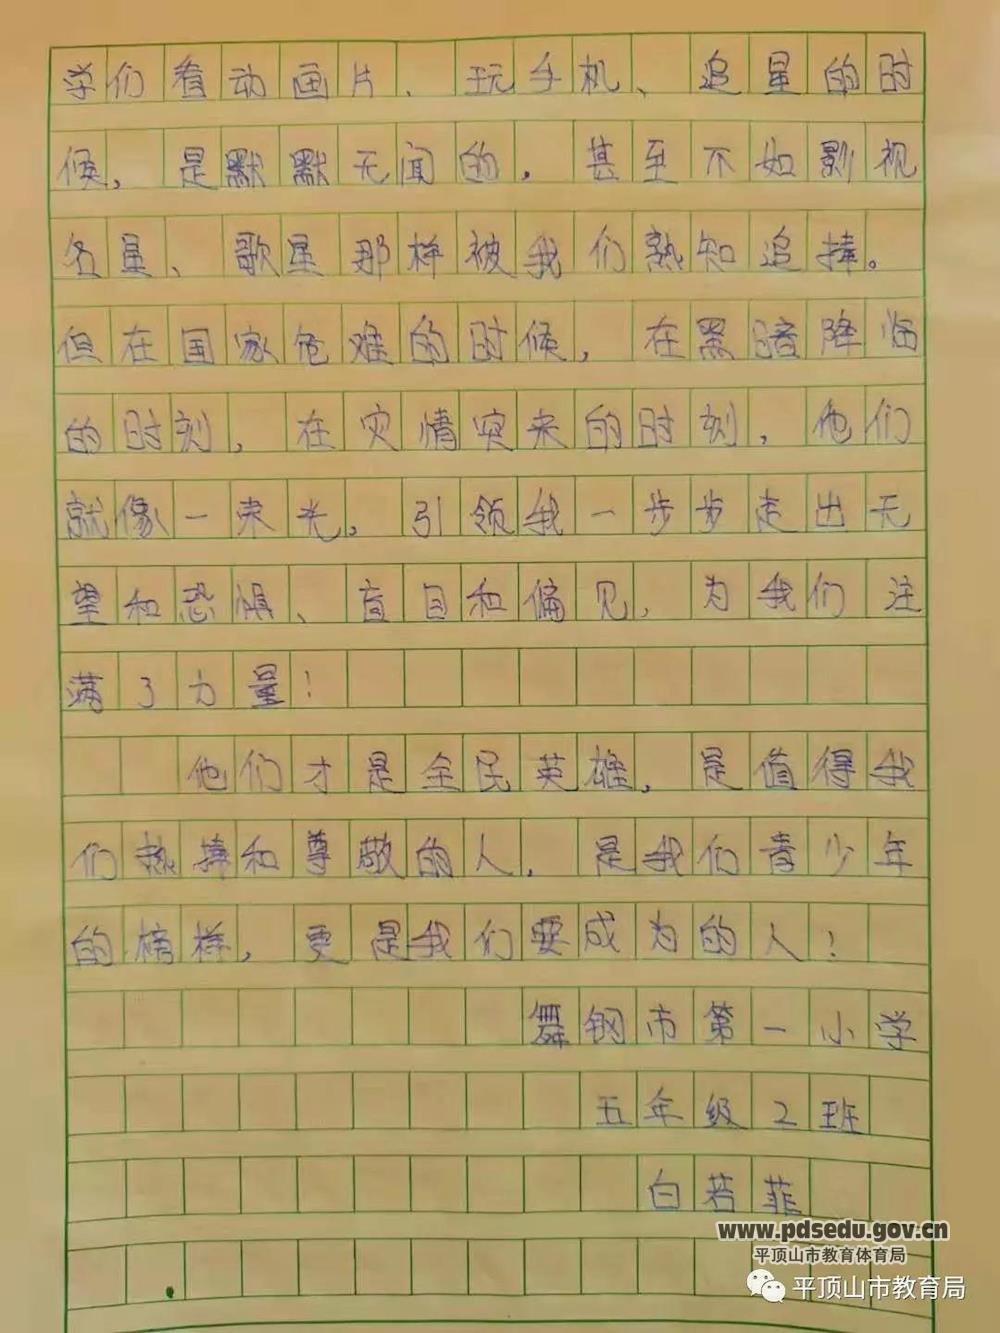 学们看动画片、玩手机、追星的时
候，是默默无闻的，甚至不如影视
名星、歌星那样被我们熟知追捧。
但在国家危难的时候，在黑暗降临
的时刻，在灾情突来的时刻，他们
就像一束光，引领我一步步走出无
望和恐惧、盲目和偏见，为我们注
满了力量！
他们才是全民英雄，是值得我
们热捧和尊敬的人，是我们青少年
的榜样，更是我们要成为的人！
舞钢市第一小学
五年级2班
白若菲
www.pdsedu.gov.cn
平顶山市教育体育局
平顶山市教育局